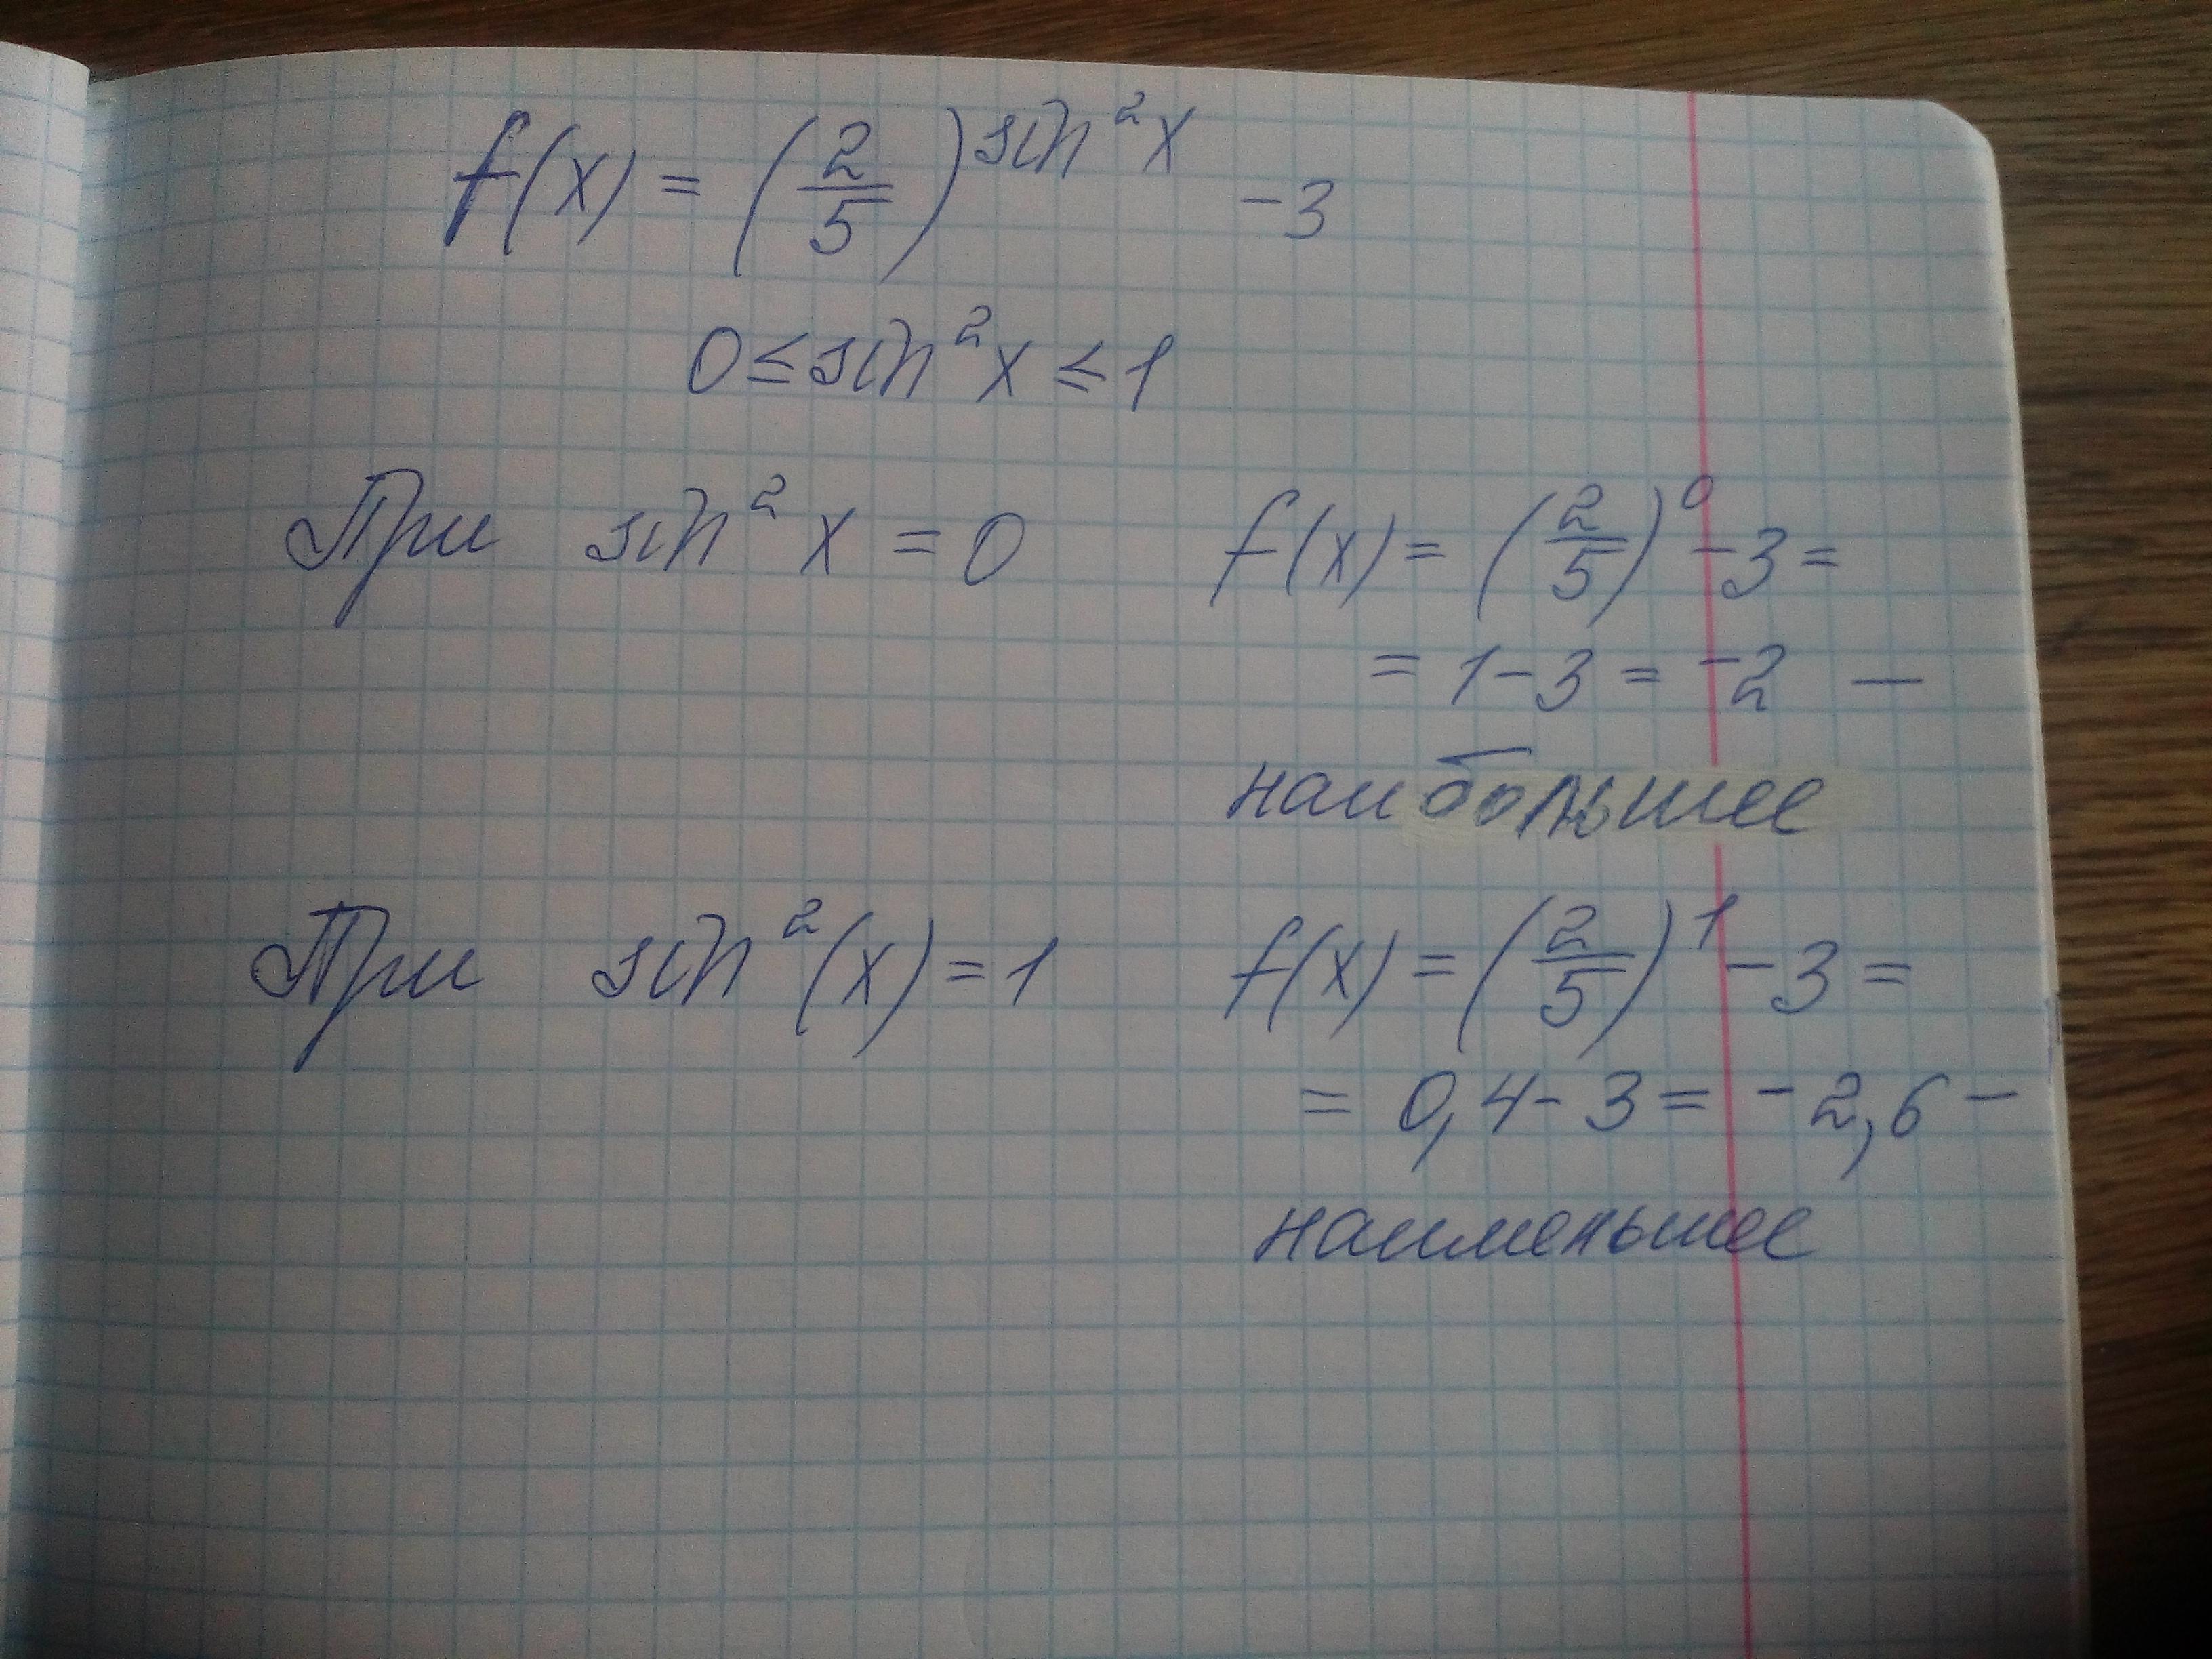 f(x) = (2/5)^sin²x - 3
0 ≤ sin²x ≤ 1
При sin²x = 0 f(x) = (2/5)^0 - 3 =
= 1 - 3 = -2 —
наибольшее
При sin²(x) = 1 f(x) = (2/5)^1 - 3 =
= 0,4 - 3 = -2,6 -
наименьшее